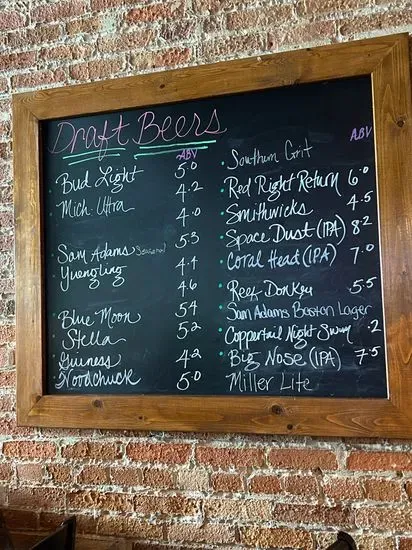 Draft Beers
ABV
Bud Light 5.0
Mich. Ultra 4.2
4.0
Sam Adams (Seasonal) 5.3
Yuengling 4.4
4.6
Blue Moon 5.4
Stella 5.2
Guiness 4.2
Woodchuck 5.0
ABV
Southern Grit
Red Right Return 6.0
Smithwicks 4.5
Space Dust (IPA) 8.2
Coral Head (IPA) 7.0
Reef Donkey 5.5
Sam Adams Boston Lager
Coppertail Night Swim .2
Big Nose (IPA) 7.5
Miller Lite